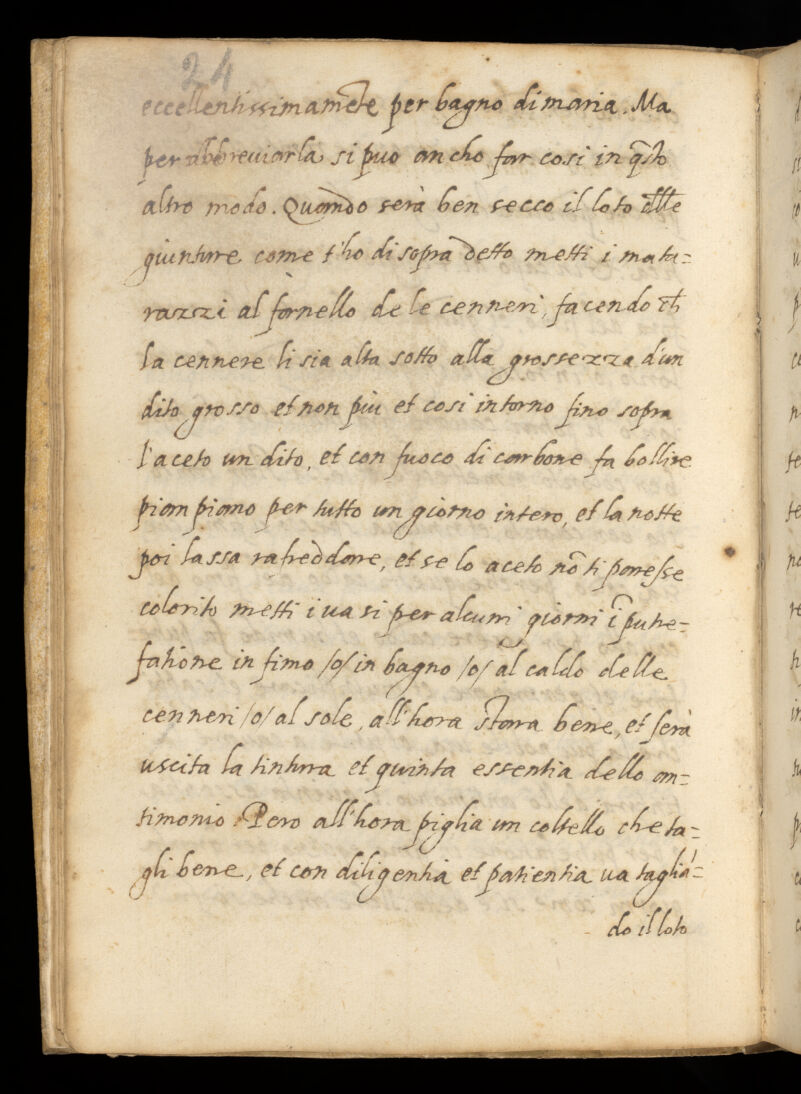 24
eccellentissimamēte per bagno di maria. Ma
per abbreviarla si puo ancho far cosi in q̄sto
altro modo. Quando serà ben secco il loto dll̄e
giunture come t'ho di sopra detto metti i mata=
razzi al fornello de le cenneri, facendo ch̄
la cennere li sia alta sotto alla grossezza d'un
dito grosso et non piu et cosi intorno fino sopra
l'aceto un dito, et con fuoco di carbone fa bollire
pian piano per tutto un giorno intero, et la notte
poi lassa rafreddare, et se lo aceto nō ti paresse
colorito metti i vasi per alcuni giorni ī putre=
fatione in fimo /o/ in bagno /o/ al caldo delle
cenneri /o/ al sole, all'hora stara bene, et serà
uscita la tintura et quinta essentia dello an=
timonio. Pero all'hora piglia un coltello che ta=
gli bene, et con diligentia et patientia va tagliā=
do il loto